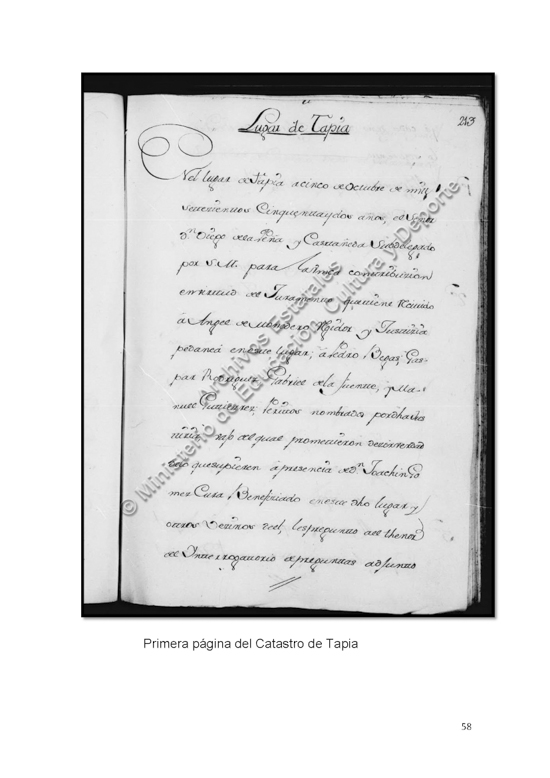 Lugar de Tapia
213
Nel lugar de Tapia a cinco de Octubre de mill
setecientos Cinquentaydos años, el Señor
Dn Diego de la Peña y Castañeda Subdelegado
por S.M. para la Unica contribuzion
en virtud de Juramento que tiene Reciuido
â Angel de Mondoero Rexidor y Justicia
pedanea en este lugar, â Pedro Begas, Gas-
par Rodriguez, Gabriel de la fuente, y Ma-
nuel Gutierrez, Vezinos nombrados por dha Jus-
tizia, bajo del qual prometieron dezir verdad
de lo que supieren â presencia de Dn Joachin Go
mez Cura Beneficiado en este dho lugar y
otros Vezinos de el, les pregunto al thenor
del Interrogatorio de preguntas adjunto
© Ministerio de Educación, Cultura y Deporte
Archivos Estatales
Primera página del Catastro de Tapia
58